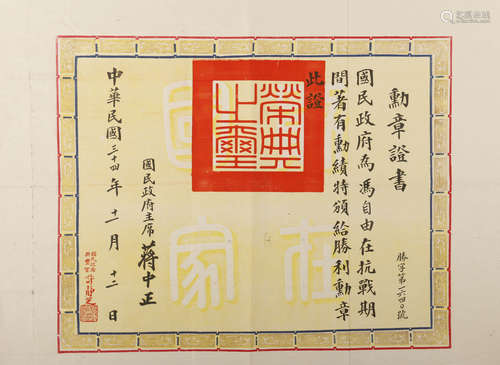 勳章證書
國民政府為馮自由在抗戰期
間著有勳績特頒給勝利勳章
此證
榮典之璽
勝字第一六四〇號
國民政府主席 蔣中正
中華民國三十四年十一月十二日